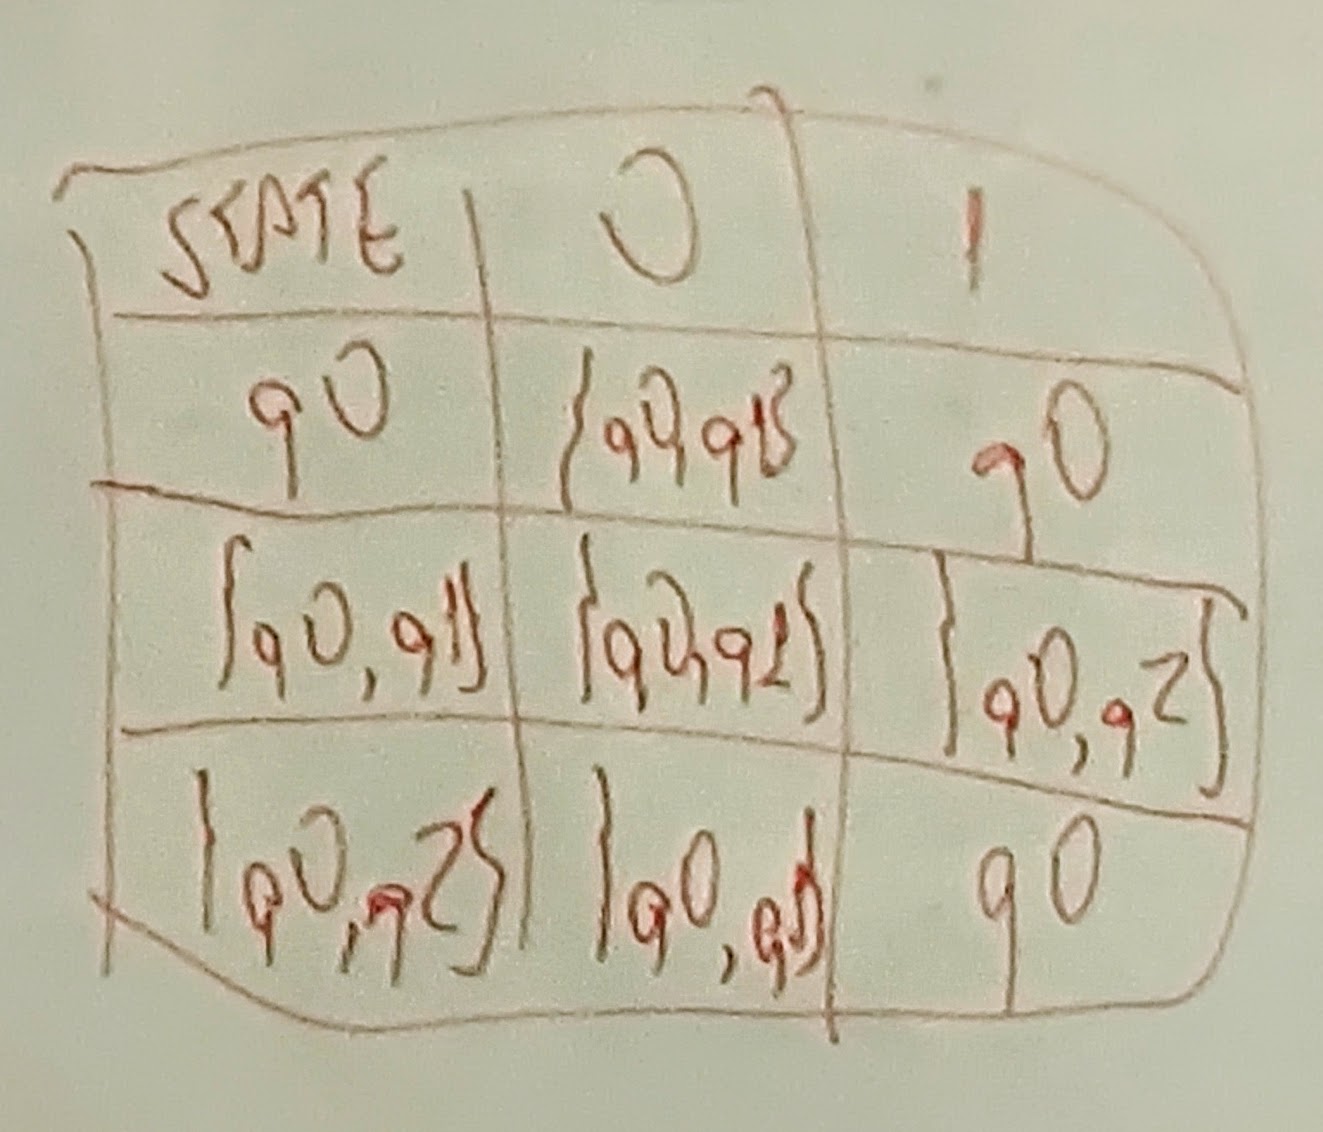 STATE 0 1
q0 {q0,q1} q0
{q0,q1} {q0,q1} {q0,q2}
{q0,q2} {q0,q1} q0